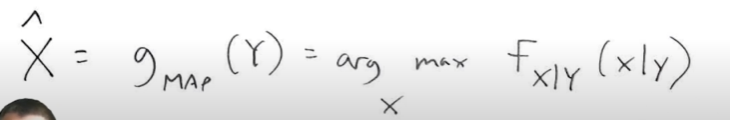 X̂ = g_MAP (Y) = arg max_x f_X|Y (x|y)